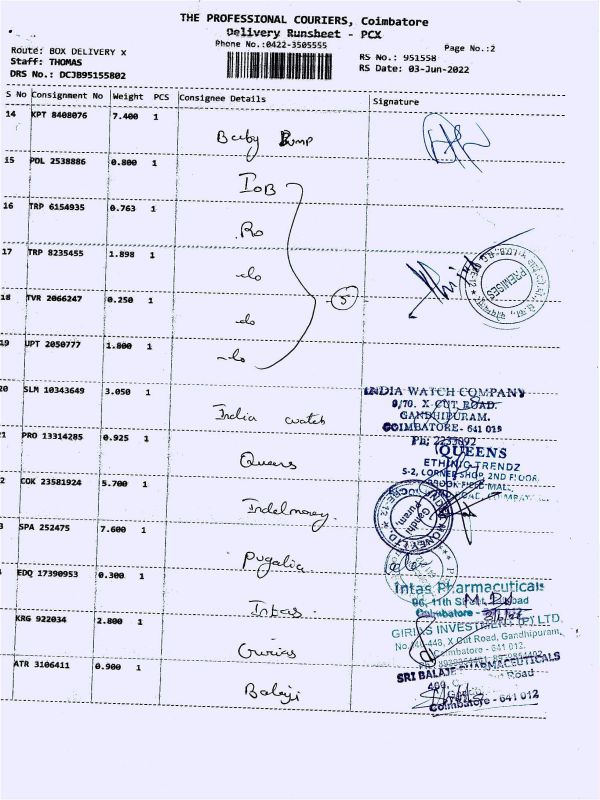 THE PROFESSIONAL COURIERS, Coimbatore
Delivery Runsheet - PCX
Phone No.:0422-3505555
Page No.:2
Route: BOX DELIVERY X
RS No.: 951558
Staff: THOMAS
RS Date: 03-Jun-2022
DRS No.: DCJB95155802
S No Consignment No Weight PCS Consignee Details Signature
14 KPT 8408076 7.400 1
Pump
15 POL 2538886 0.800 1
IOB
16 TRP 6154935 0.763 1
Ro
17 TRP 8235455 1.898 1
do
PREMISES
18 TVR 2066247 0.250 1
do
5
19 UPT 2050777 1.800 1
do
20 SLM 10343649 3.050 1
India watch
INDIA WATCH COMPANY
9/70. X CUT ROAD.
GANDHIPURAM.
COIMBATORE - 641 012
Ph: 2233892
1 PRO 13314285 0.925 1
Queens
QUEENS
ETHINIC TRENDZ
S-2, CORNER SHOP, 2ND FLOOR,
BROOK FIELD MALL,
2 COK 23581924 5.700 1
Indelmoney.
Gandhi
Puram
3 SPA 252475 7.600 1
Pugalia
EDQ 17390953 0.300 1
Intas.
Intas Pharmaceuticals
96, 11th Street,
Coimbatore -
KRG 922034 2.800 1
Girias
GIRIAS INVESTMENT (P) LTD,
X Cut Road, Gandhipuram,
Coimbatore - 641 012.
ATR 3106411 0.900 1
Balaji
SRI BALAJE PHARMACEUTICALS
Road
Coimbatore - 641 012